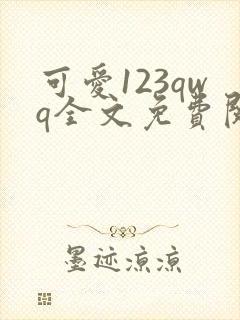 可愛123qw
q全文免費閱
墨迹凉凉